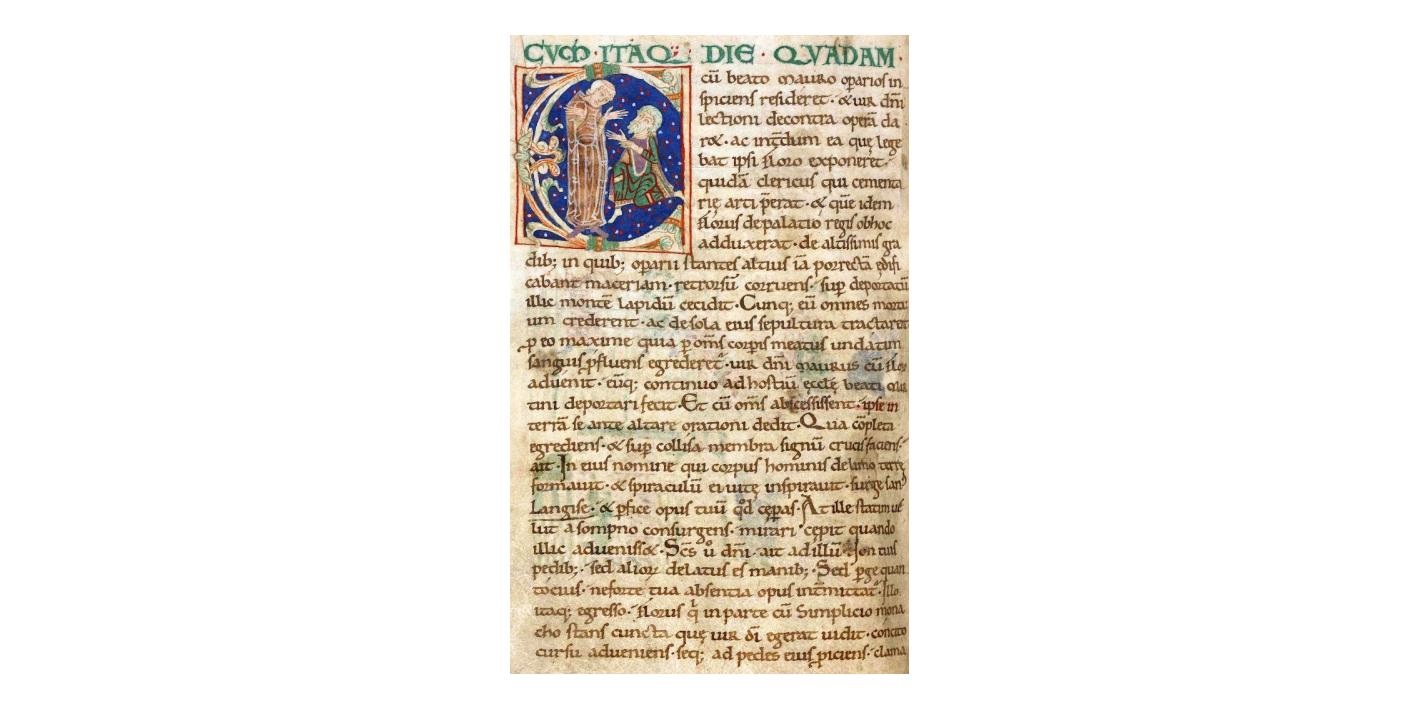 CVM · ITAQ; DIE · QVADAM ·
cū beato mauro operarios in
spiciens resideret · & uir dn̄i
lectioni decontra operā da
ret · ac int̄dum ea quę lege
bat ipsi floro exponeret ·
quidā clericus qui cementa
rię arti p̄erat · & quē idem
florus de palatio regis ob hoc
adduxerat · de altissimis gra
dib; in quib; operarii stantes altius iā porrectā ędifi
cabant maceriam · retrorsū corruens · sup deportatū
illic montē lapidū cecidit · Cunq; eū omnes mortu
um crederent · ac de sola eius sepultura tractarent
p eo maxime quia p om̄s corpis meatus undatim
sanguis pfluens egrederet̄ · uir dn̄i maurus cū flo
aduenit · eūq; continuo ad hostiū ęcclę beati mar
tini deportari fecit · Et cū om̄s abscessissent · ipse in
terrā se ante altare orationi dedit · Qua cōpleta
egrediens · & sup collisa membra signū crucis faciens ·
ait · In eius nomine qui corpus hominis de limo terrę
formauit · & spiraculū ei uitę inspirauit · surge san
Langise · & pfice opus tuū qd cępas · At ille statim ue
lut a sompno consurgens · mirari cępit quando
illic aduenisset · Scs u dn̄i ait ad illū · Non tuis
pedib; · sed alior delatus es manib; · Sed pge quan
tocius · ne forte tua absentia opus int̄mittat̄ · Illo
itaq; egresso · florus q in parte cū Simplicio mona
cho stans cuncta quę uir dī egerat uidit · concito
cursu adueniens · seq; ad pedes eius piciens · clama